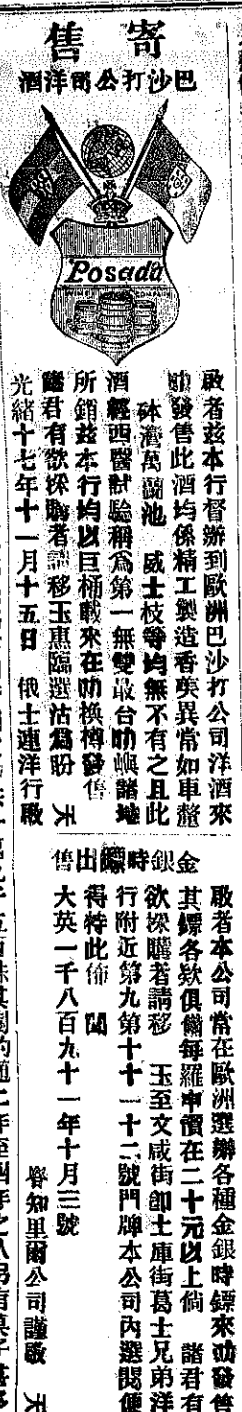 寄售
巴沙打公司洋酒
Posada
敬者茲本行督辦到歐洲巴沙打公司洋酒來
叻發售此酒均係精工製造香美異常如車釐
砵灣萬蘭池 威士枝等均無不有之且此
酒經西醫試驗稱為第一無雙最合叻嶼諸埠
所銷茲本行均以巨桶載來在叻換樽發售
諸君有欲採購者請移玉惠臨選沽為盼 天
光緒十七年十一月十五日 俄士連洋行啟
金銀時鏢出售
敬者本公司常在歐洲選辦各種金銀時鏢來叻發售
其鏢各欵俱備每羅申價在二十元以上倘 諸君有
欲採購者請移 玉至文咸街即土庫街葛士兄弟洋
行附近第九第十十一十二號門牌本公司內選閱便
得特此佈 聞
大英一千八百九十一年十月三號
知里爾公司謹啟 天